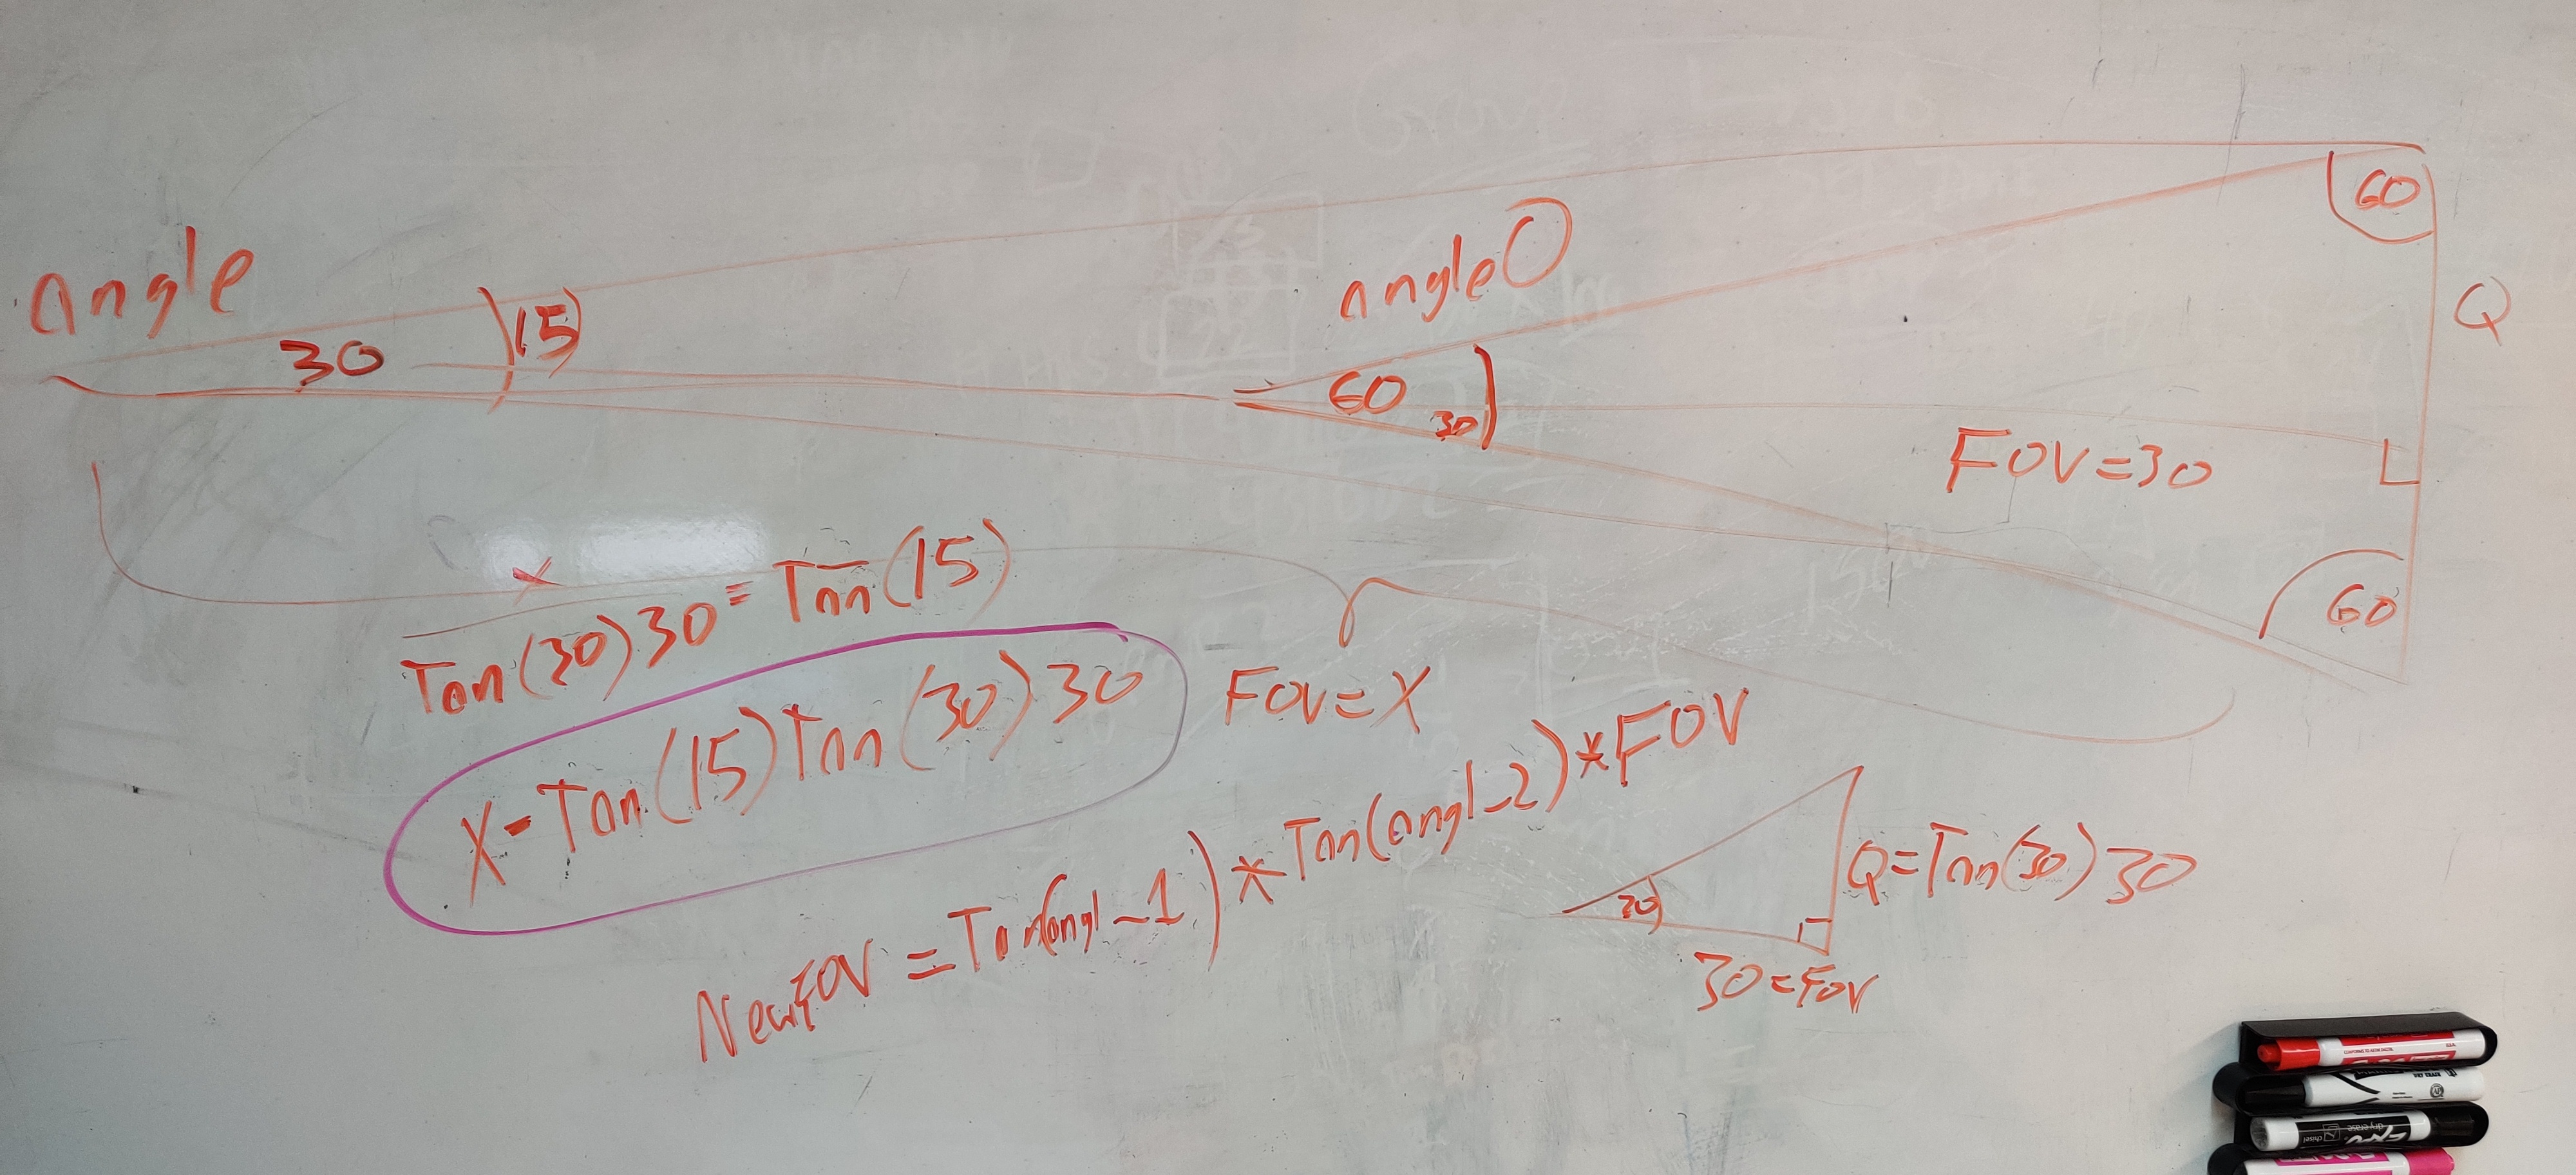 angle
30
15
angle0
60
30
60
Q
FOV=30
60
X
Tan(30)30 = Tan(15)
X=Tan(15)Tan(30)30
FOV=X
NewFOV = Tan(angl-1) * Tan(angl-2) * FOV
30
Q=Tan(30)30
30=FOV